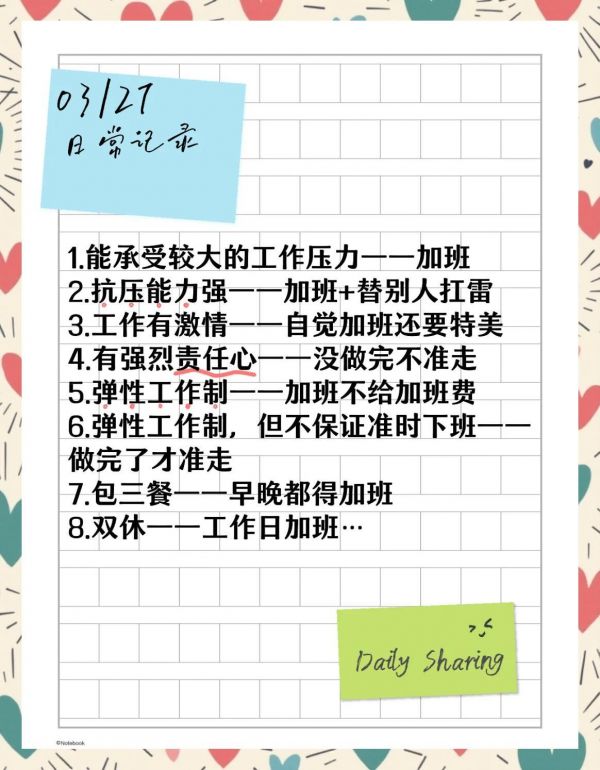 03/27
日常记录
1.能承受较大的工作压力一一加班
2.抗压能力强一一加班+替别人扛雷
3.工作有激情一一自觉加班还要特美
4.有强烈责任心一一没做完不准走
5.弹性工作制一一加班不给加班费
6.弹性工作制，但不保证准时下班一一
做完了才准走
7.包三餐一一早晚都得加班
8.双休一一工作日加班…
Daily Sharing
©Notebook